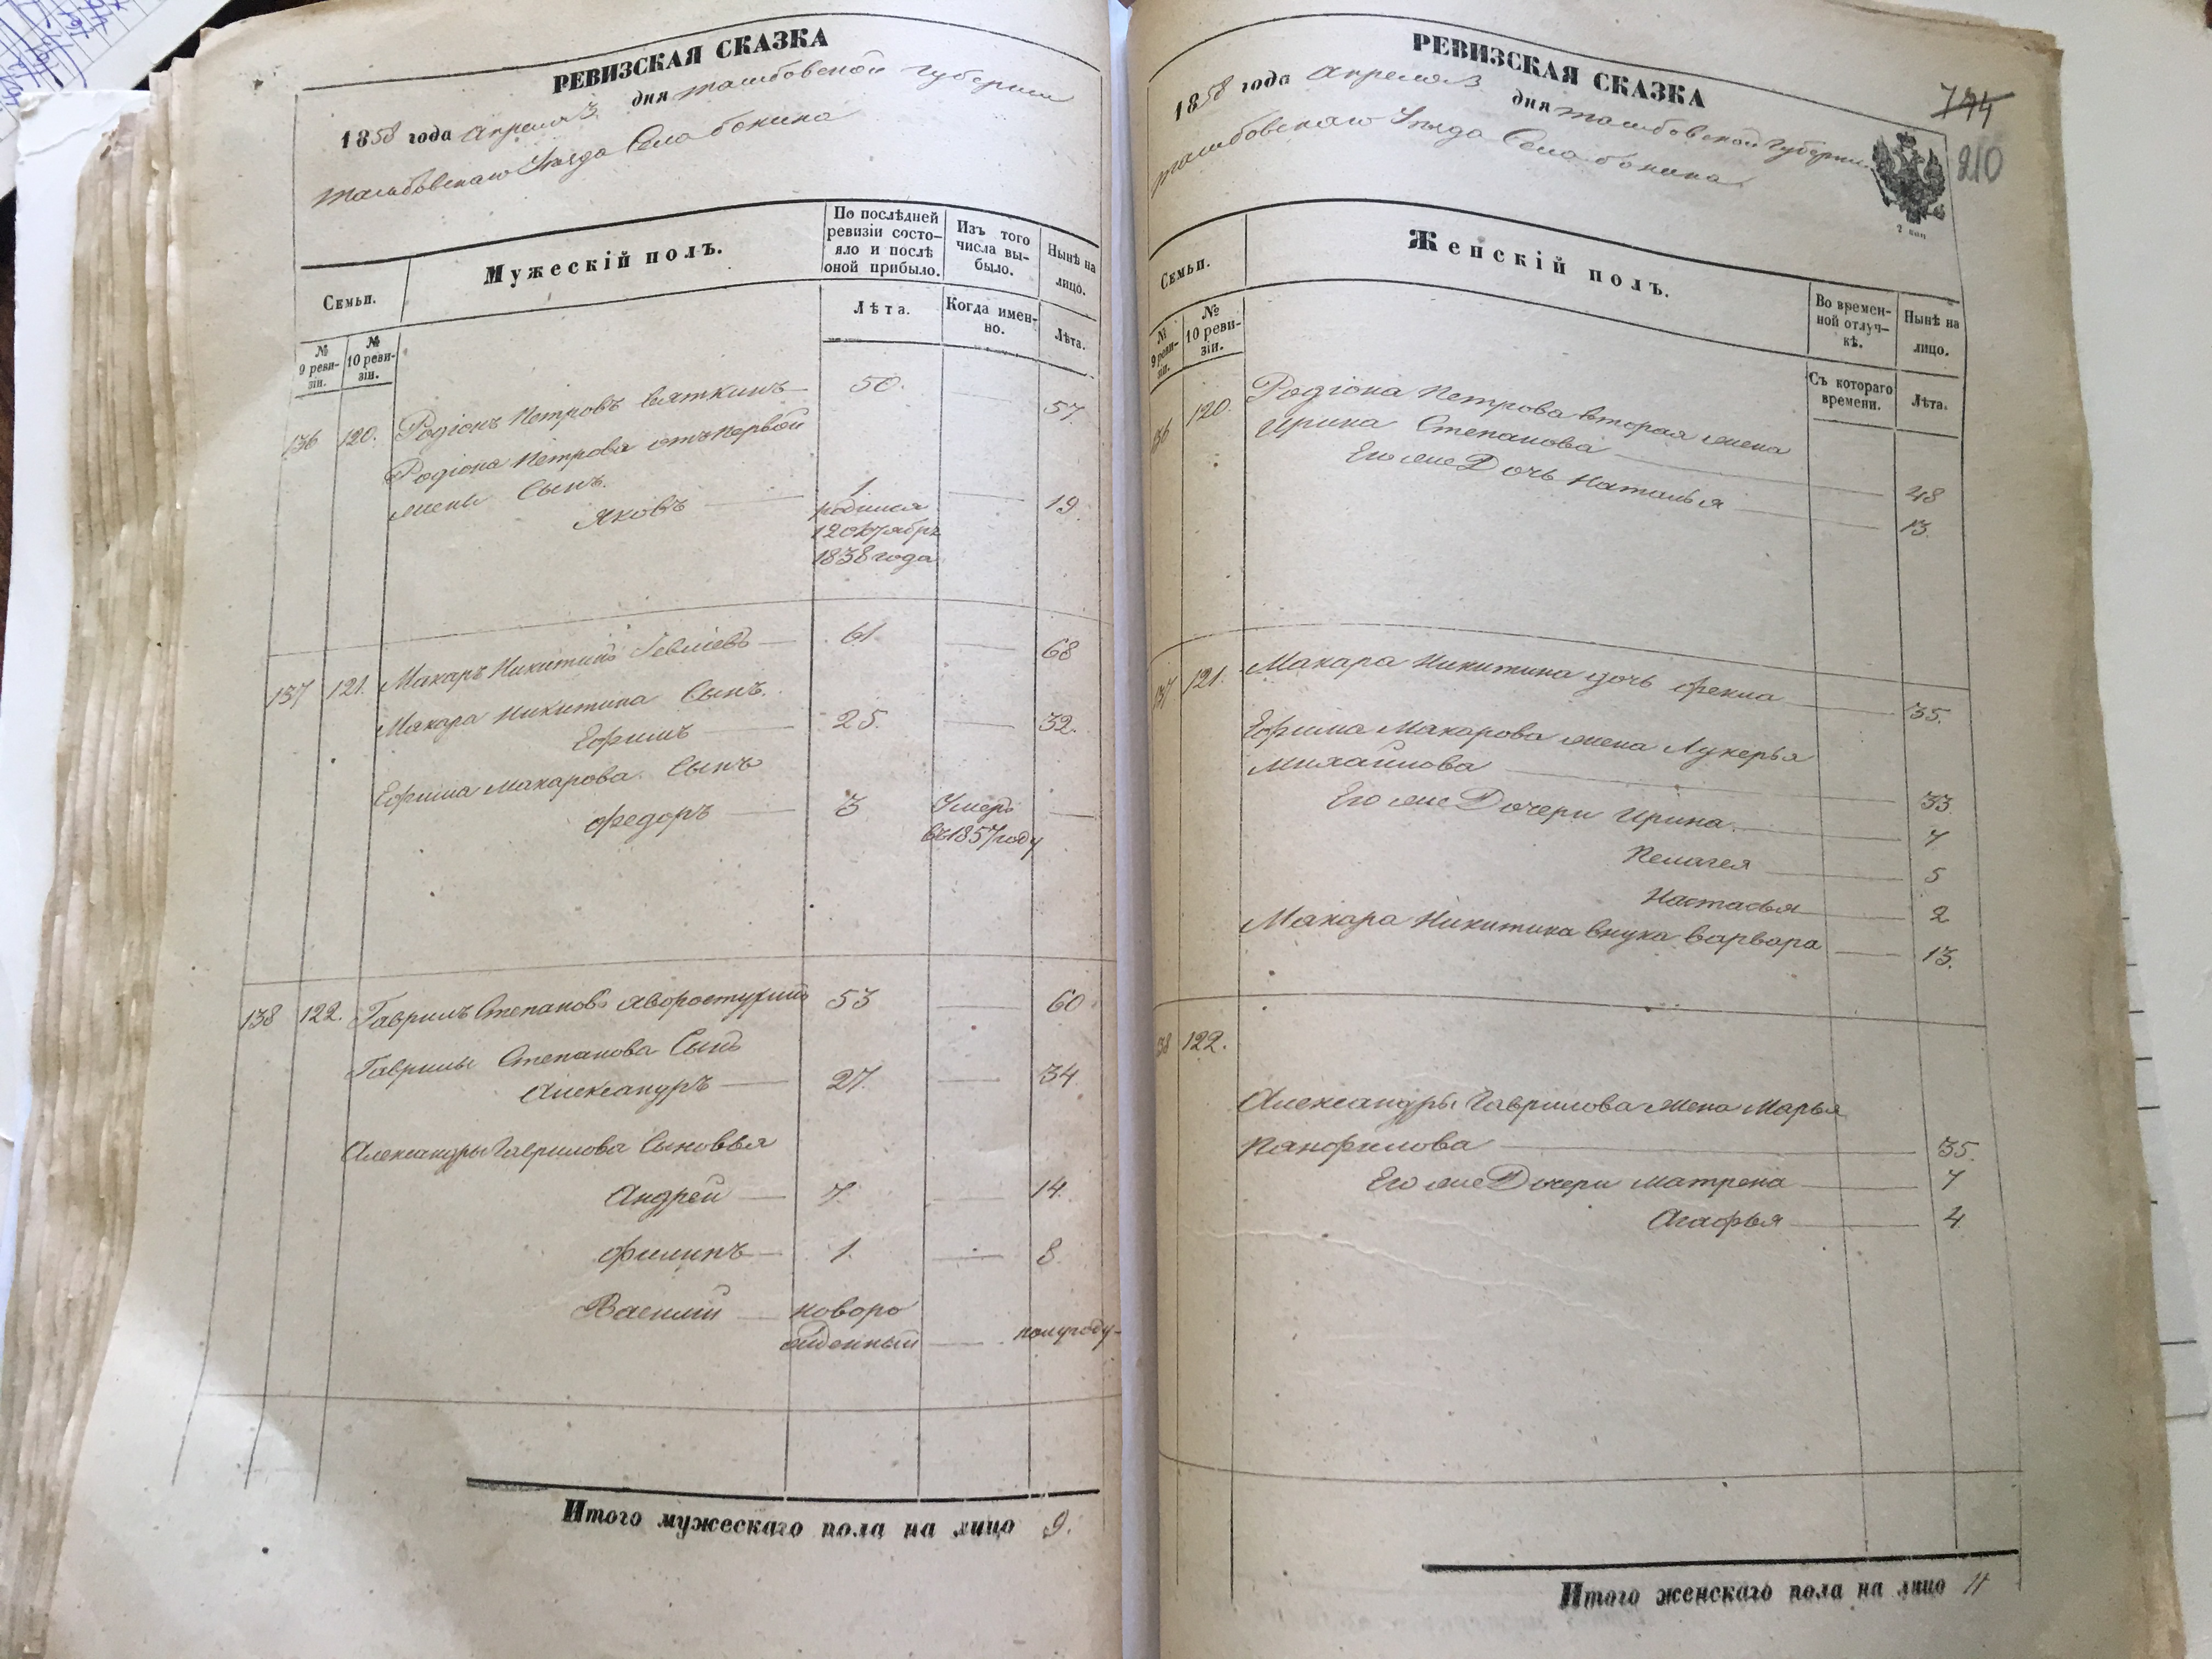 РЕВИЗСКАЯ СКАЗКА
1858 года Апреля 3 дня тамбовской губернии
тамбовскаго Уезда Села бокина
Семьи.
№ 9 ревизіи.
№ 10 ревизіи.
Мужескій полъ.
По послѣдней ревизіи состояло и послѣ оной прибыло.
Лѣта.
Изъ того числа выбыло.
Когда именно.
Нынѣ на лицо.
Лѣта.
136 120. Родіонъ Петровъ Вяткинъ 50. 57.
Родіона Петрова отъ первой
жены Сынъ.
Яковъ 1. 19.
родился
12 октября
1838 года
137 121. Макаръ Никитинъ 61 68
Макара Никитина Сынъ.
Ефимъ 25. 32.
Ефима Макарова Сынъ
Федоръ 3 Умеръ
въ 1857 году
138 122. Гаврилъ Степановъ 53 60
Гаврилы Степанова Сынъ
Александръ 27. 34
Александры Гаврилова Сыновья
Андрей 7. 14.
Филипъ 1. 8.
Василий новоро
жденный полугоду
Итого мужескаго пола на лицо 9.
РЕВИЗСКАЯ СКАЗКА
1858 года Апреля 3 дня тамбовской Губернии
тамбовскаго Уезда Села бокина
210
2 коп
Семьи.
№ 9 ревизіи.
№ 10 ревизіи.
Женскій полъ.
Во временной отлучкѣ.
Съ котораго времени.
Нынѣ на лицо.
Лѣта.
36 120. Родіона Петрова вторая жена
Ирина Степанова 48
Его же Дочь Наталья 13.
37 121. Макара Никитина дочь Фекла 35.
Ефима Макарова жена Лукерья
Михаилова 33
Его же Дочери Ирина 7
Пелагея 5
Настасья 2
Макара Никитина внука Варвара 13.
38 122.
Александры Гаврилова жена Марья
Панфилова 35.
Его же Дочери Матрена 7
Агафья 4.
Итого женскаго пола на лицо 11